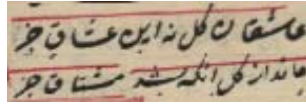 عاشقان کل نه این عشاق جز
ماند از کل انکه شد مشتاق جز